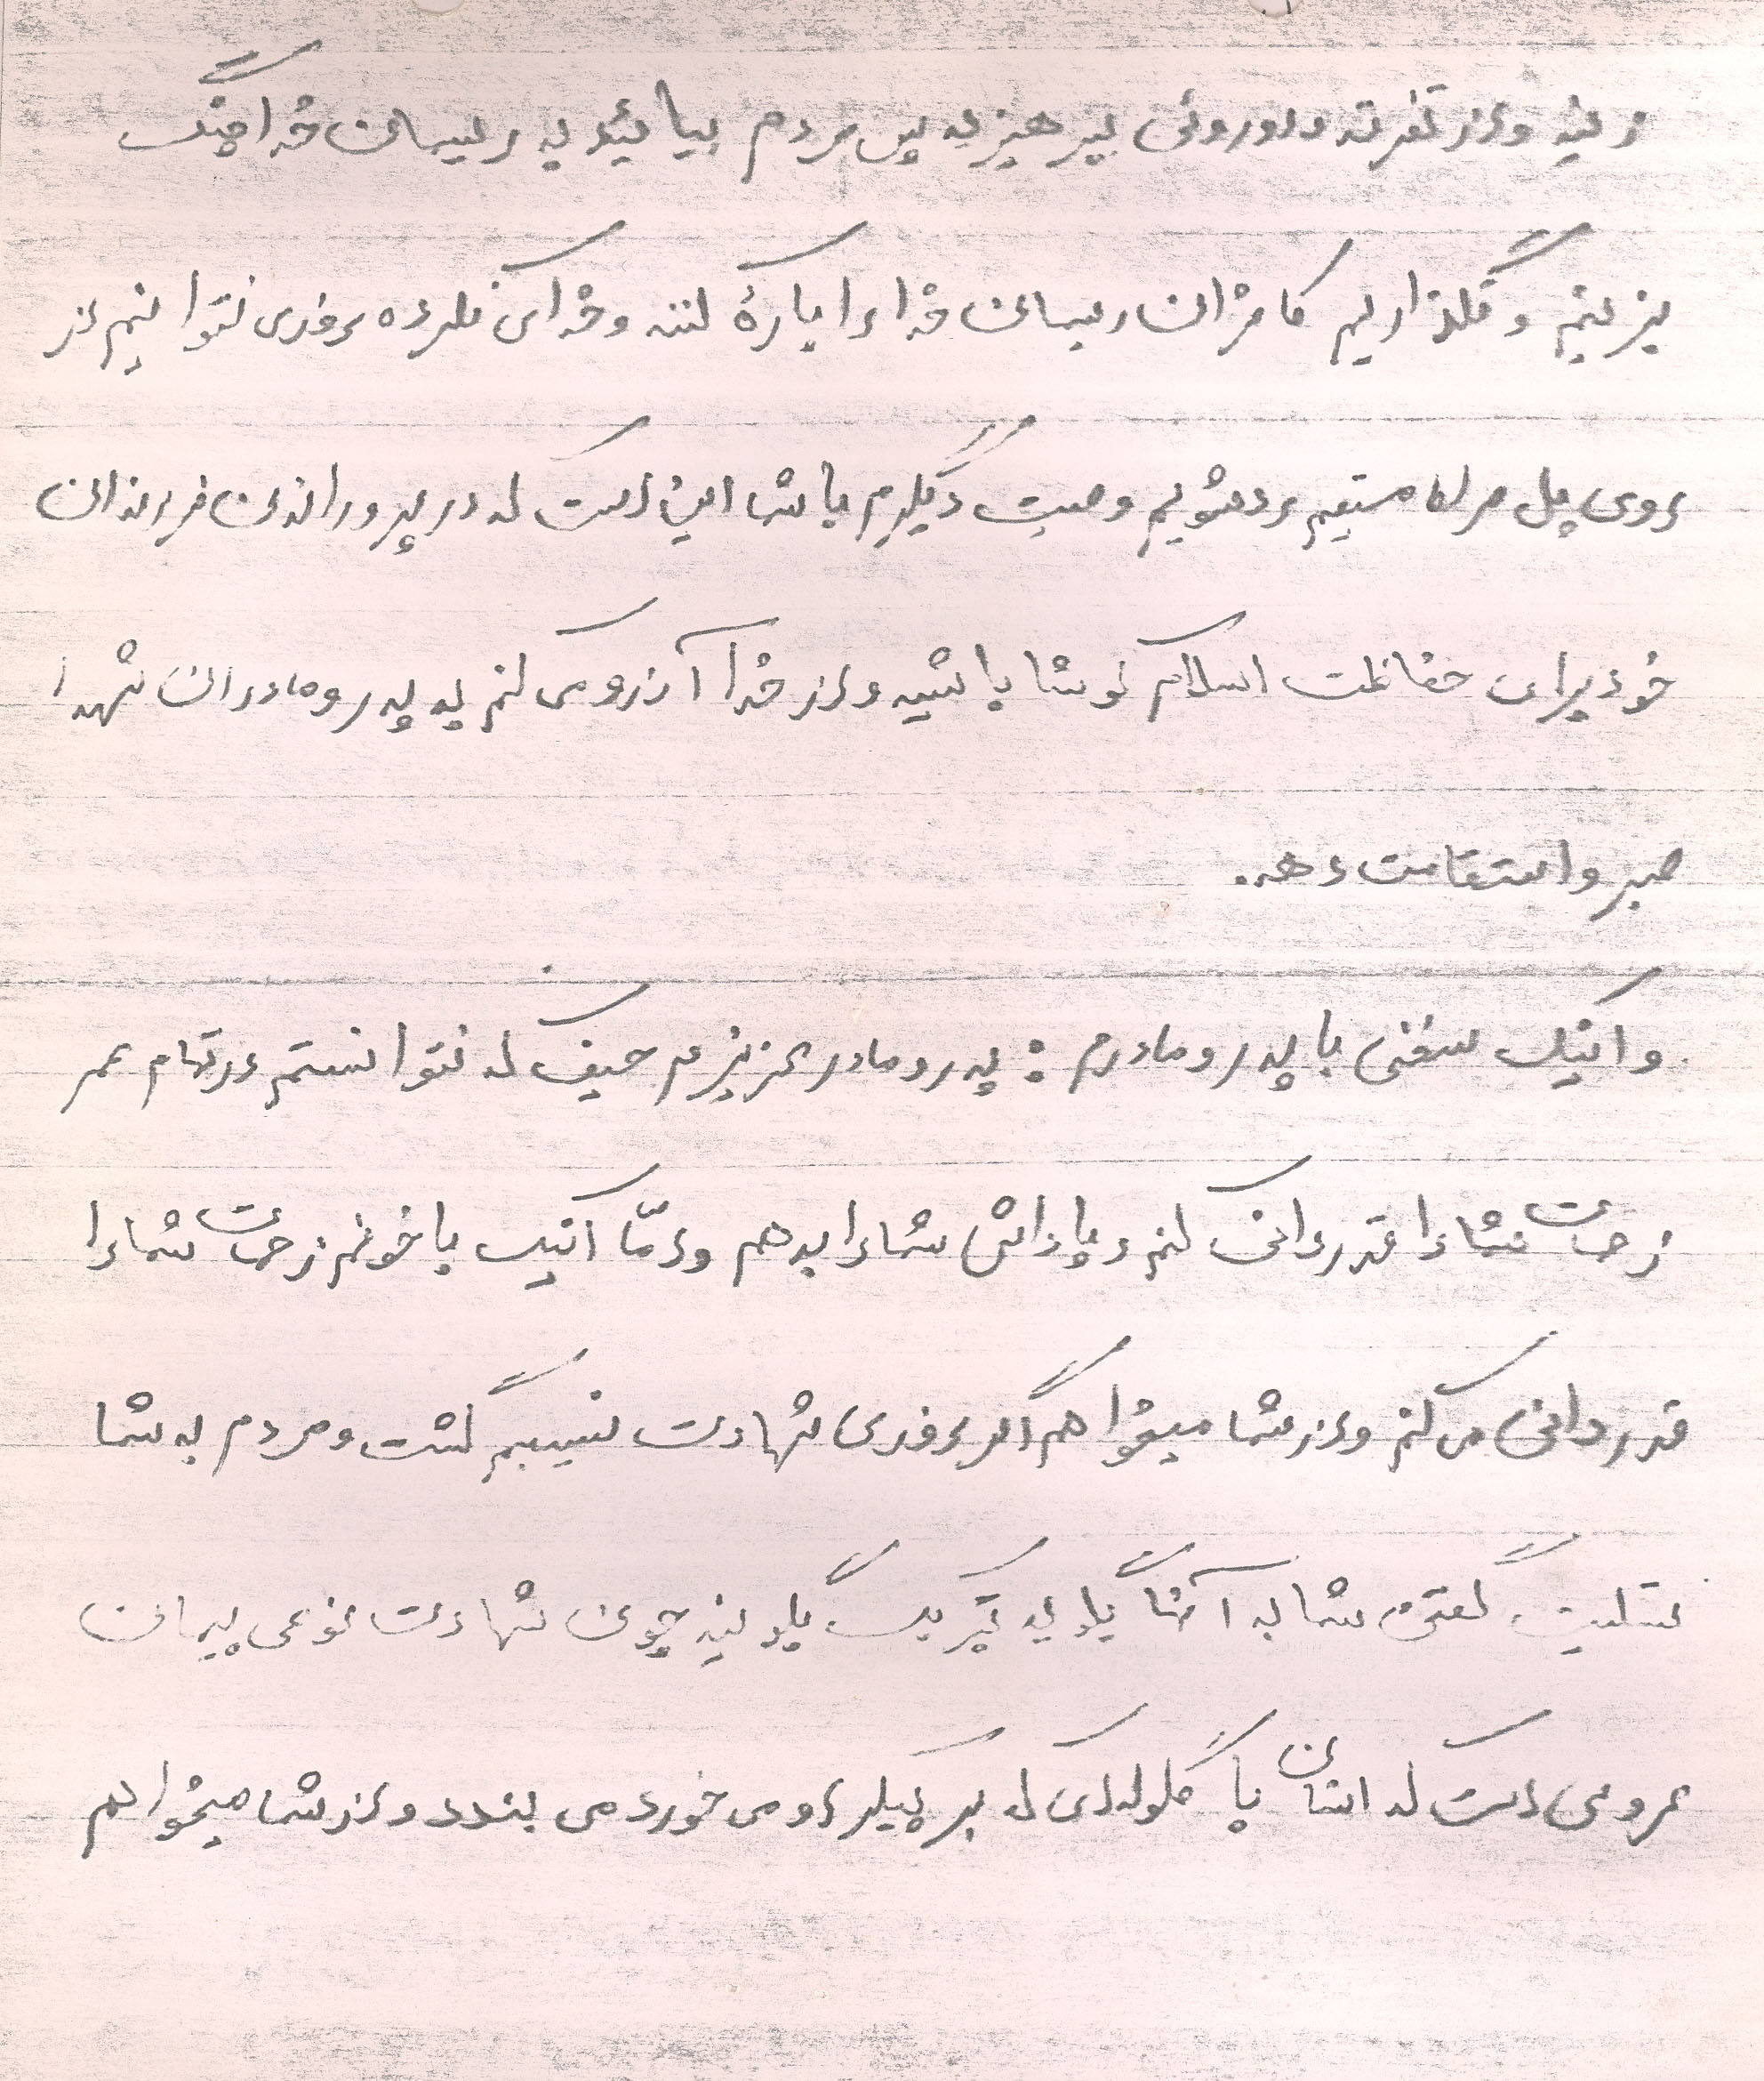 زنید و از تفرقه و دوروئی بپرهیزید پس مردم بیائید به ریسمان خدا چنگ
بزنیم و نگذاریم کافران ریسمان خدا را پارهٔ کنند و خدای نکرده روزی نتوانیم از
روی پل صراط مستقیم رد شویم وصیت دیگرم با شما این است که در پروراندن فرزندان
خود برای حفاظت اسلام کوشا باشید و از خدا آرزو می کنم به پدر و مادران شهدا
صبر و استقامت دهد.
و اینک سخنی با پدر و مادرم : پدر و مادر عزیزم حیف که نتوانستم در تمام عمر
زحمات شما را قدردانی کنم و پاداش شما را بدهم و امّا اینک با خونم زحمات شما را
قدردانی می کنم و از شما میخواهم اگر روزی شهادت نسیبم گشت و مردم به شما
تسلیت گفتن شما به آنها بگوید تبریک بگویند چون شهادت نوعی پیمان
عروسی است که انسان با گلوله‌ای که بر پیکر او می خورد می بندد و از شما میخواهم